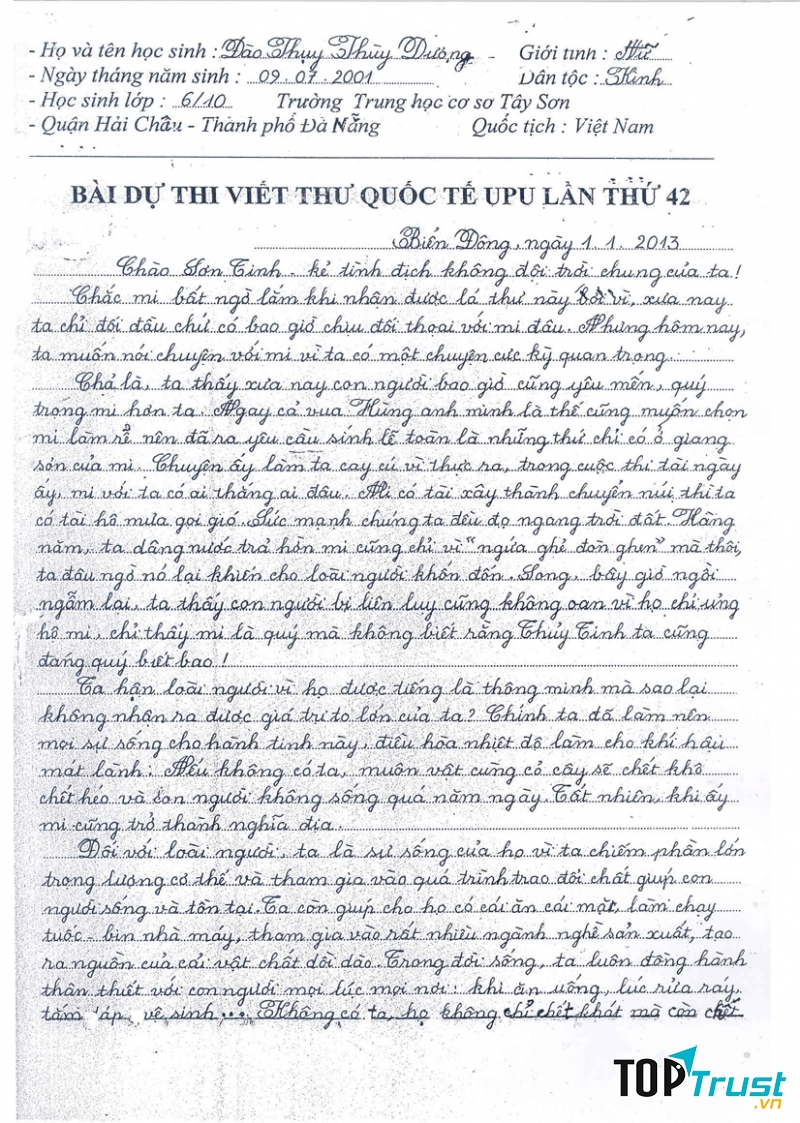 - Họ và tên học sinh : Đào Thụy Thùy Dương - Giới tính : Nữ
- Ngày tháng năm sinh : 09.07.2001 Dân tộc : Kinh
- Học sinh lớp : 6/10 Trường Trung học cơ sơ Tây Sơn
- Quận Hải Châu - Thành phố Đà Nẵng Quốc tịch : Việt Nam
BÀI DỰ THI VIẾT THƯ QUỐC TẾ UPU LẦN THỨ 42
Biển Đông, ngày 1.1.2013
Chào Sơn Tinh - kẻ tình địch không đội trời chung của ta!
Chắc mi bất ngờ lắm khi nhận được lá thư này bởi vì, xưa nay
ta chỉ đối đầu chứ có bao giờ chịu đối thoại với mi đâu. Nhưng hôm nay,
ta muốn nói chuyện với mi vì ta có một chuyện cực kỳ quan trọng.
Chả là, ta thấy xưa nay con người bao giờ cũng yêu mến, quý
trọng mi hơn ta. Ngay cả vua Hùng anh minh là thế cũng muốn chọn
mi làm rể nên đã ra yêu cầu sính lễ toàn là những thứ chỉ có ở giang
sơn của mi. Chuyện ấy làm ta cay cú vì thực ra, trong cuộc thi tài ngày
ấy, mi với ta có ai thắng ai đâu. Mi có tài xây thành chuyển núi thì ta
có tài hô mưa gọi gió. Sức mạnh chúng ta đều đọ ngang trời đất. Hàng
năm, ta dâng nước trả hờn mi cũng chỉ vì "ngứa ghẻ đòn ghen" mà thôi,
ta đâu ngờ nó lại khiến cho loài người khốn đốn. Song, bây giờ ngồi
ngẫm lại, ta thấy con người bị liên lụy cũng không oan vì họ chỉ ủng
hộ mi, chỉ thấy mi là quý mà không biết rằng Thủy Tinh ta cũng
đáng quý biết bao!
Ta hận loài người vì họ được tiếng là thông minh mà sao lại
không nhận ra được giá trị to lớn của ta? Chính ta đã làm nên
mọi sự sống cho hành tinh này, điều hòa nhiệt độ làm cho khí hậu
mát lành. Nếu không có ta, muôn vật cùng cỏ cây sẽ chết khô
chết héo và con người không sống quá năm ngày. Tất nhiên, khi ấy
mi cũng trở thành nghĩa địa.
Đối với loài người, ta là sự sống của họ vì ta chiếm phần lớn
trọng lượng cơ thể và tham gia vào quá trình trao đổi chất giúp con
người sống và tồn tại. Ta còn giúp cho họ có cái ăn cái mặt, làm chạy
tuốc-bin nhà máy, tham gia vào rất nhiều ngành nghề sản xuất, tạo
ra nguồn của cải vật chất dồi dào. Trong đời sống, ta luôn đồng hành
thân thiết với con người mọi lúc mọi nơi: khi ăn uống, lúc rửa ráy,
tắm táp, vệ sinh... Không có ta, họ không chỉ chết khát mà còn chết
TOPTrust
.vn